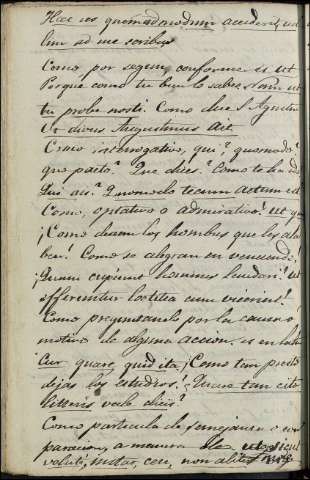 Hæc res quemadmodum acciderit, ve
lim ad me scribas
Como, por segun, conforme, es ut
Porque como tu bien lo sabes. Nam ut
tu probe nosti. Como dice S. Agustin
Ut divus Augustinus ait.
Como interrogativo, qui? quomodo?
quo pacto? Que dices? Como te ha ido
Qui ais? Quomodo tecum actum est
Como, optativo o admirativo! ut quam
¡Como desean los hombres que les ala
ben! Como se alegran en venciendo,
¡Quam cupiunt homines laudari! ut
efferuntur lætitia cum vicerint!
Como preguntando por la causa o
motivo de alguna accion, es en latin
Cur, quare, quid ita, ¡Como tan presto
dejas los estudios! ¿Quare tam cito
litteris vale dicis?
Como particula de semejanza o com
paracion, a manera de ut, sicut
veluti, instar, ceu, non aliter